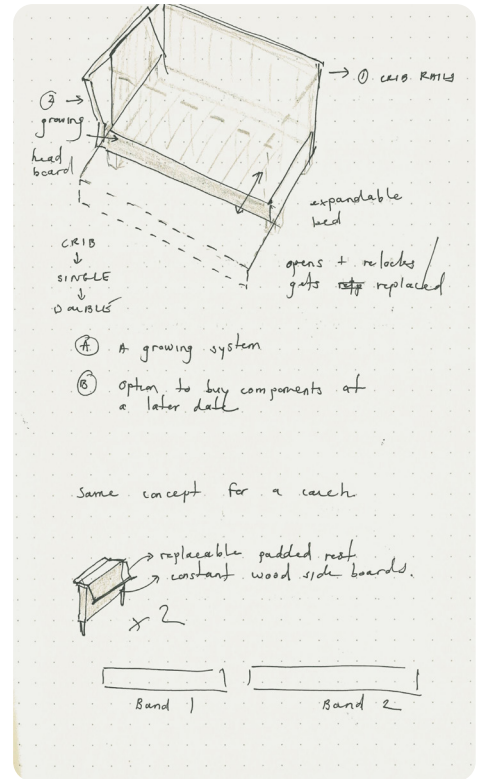 ① CRIB RAILS
② growing
head
board
expandable
bed
CRIB
↓
SINGLE
↓
DOUBLE
opens + relocks /
gets replaced
Ⓐ A growing system
Ⓑ Option to buy components at
a later date
Same concept for a couch
replaceable padded rest
constant wood side boards.
x 2
Band 1
Band 2